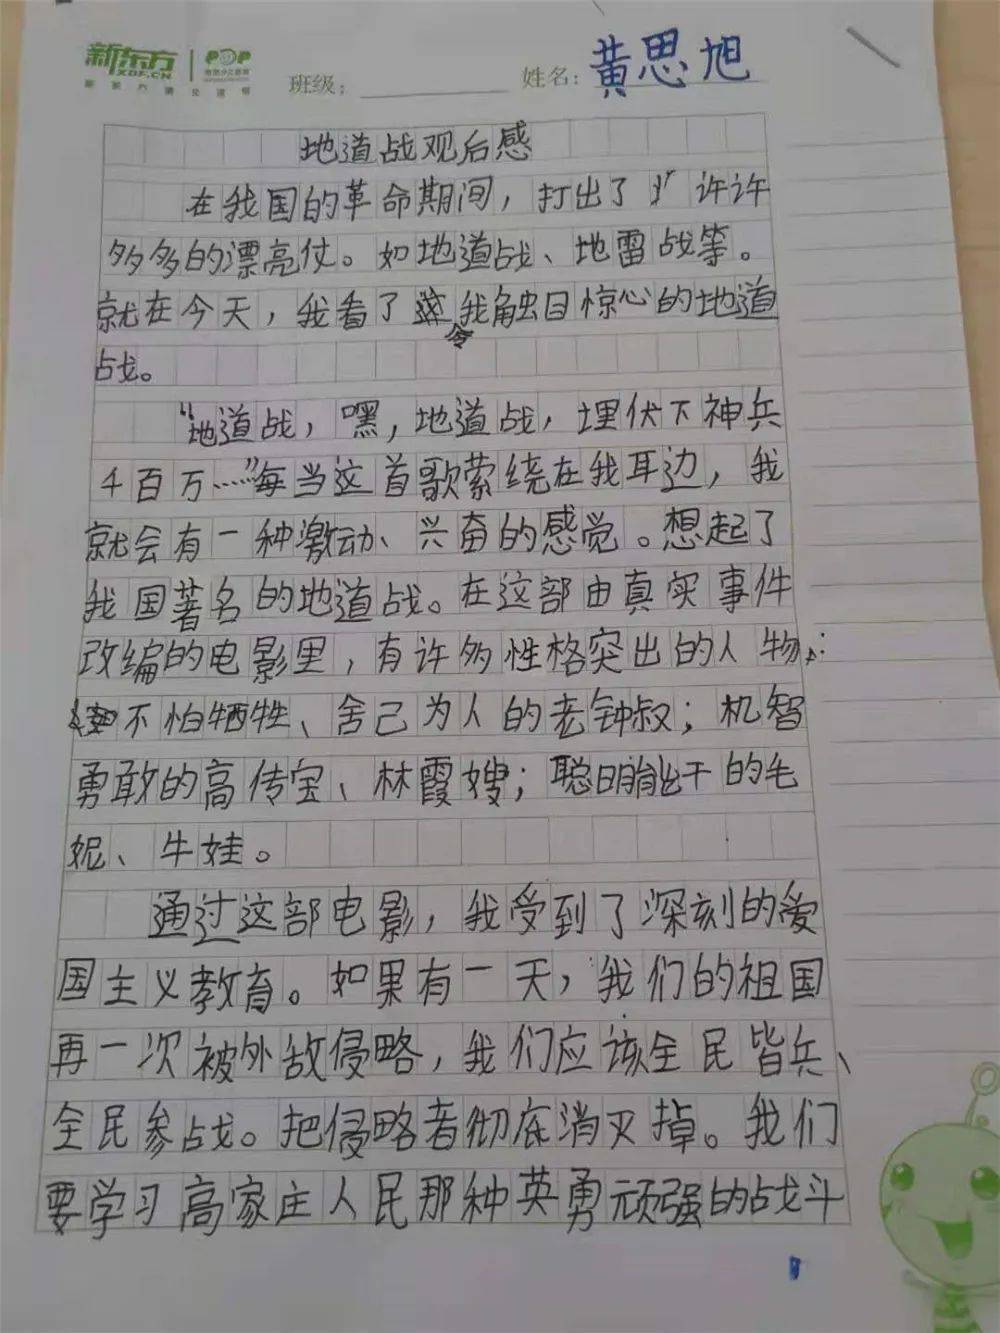 新东方 POP
XDF.CN
班级： 姓名：黄思旭
地道战观后感
在我国的革命期间，打出了许许
多多的漂亮仗。如地道战、地雷战等。
就在今天，我看了令我触目惊心的地道
战。
“地道战，嘿，地道战，埋伏下神兵
千百万……”每当这首歌萦绕在我耳边，我
就会有一种激动、兴奋的感觉。想起了
我国著名的地道战。在这部由真实事件
改编的电影里，有许多性格突出的人物：
不怕牺牲、舍己为人的老钟叔；机智
勇敢的高传宝、林霞嫂；聪明能干的毛
妮、牛娃。
通过这部电影，我受到了深刻的爱
国主义教育。如果有一天，我们的祖国
再一次被外敌侵略，我们应该全民皆兵、
全民参战。把侵略者彻底消灭掉。我们
要学习高家庄人民那种英勇顽强的战斗